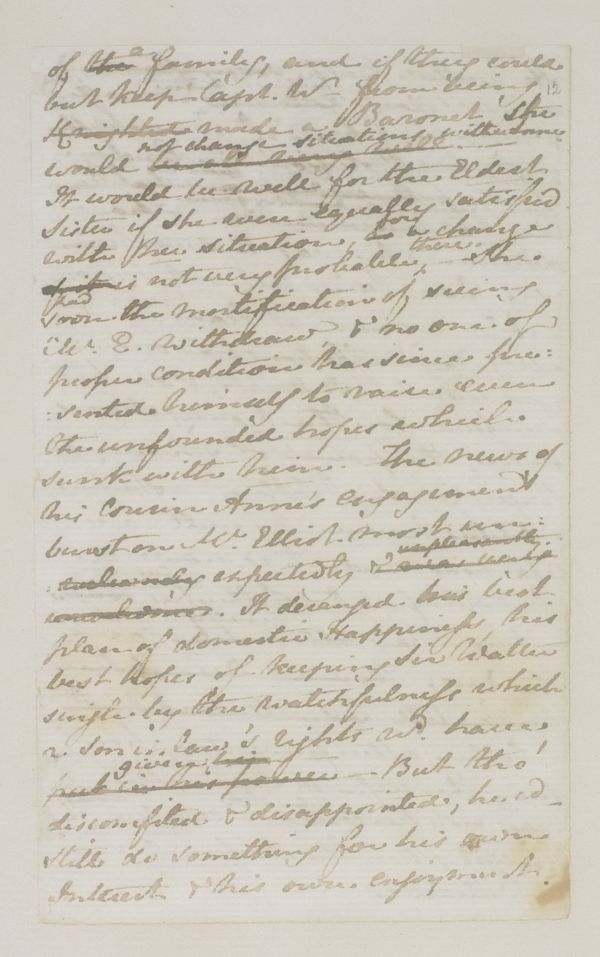 of the a family, and if they could
12
but keep Capt. W. from being
Knighted made a Baronet, She
would not change situations with Anne
It would be well for the Eldest
Sister if she were equally satisfied
with her situation, for a change
is not very probable there. She
had
soon the mortification of seeing
Mr. E. withdraw, & no one of
proper condition has since pre:
:sented himself to raise even
the unfounded hopes which
sunk with him. The news of
his Cousin Anne's engagement
burst on Mr. Elliot most un:
unpleasantly
:welcomely expectedly & was very
unwelcome. It deranged his best
plan of domestic Happiness, his
best hopes of keeping Sir Walter
single by the watchfulness which
a son in law's rights wd. have
given. his
put in his power — But tho'
discomfited & disappointed, he cd.
still do something for his own
Interest & his own enjoyment.